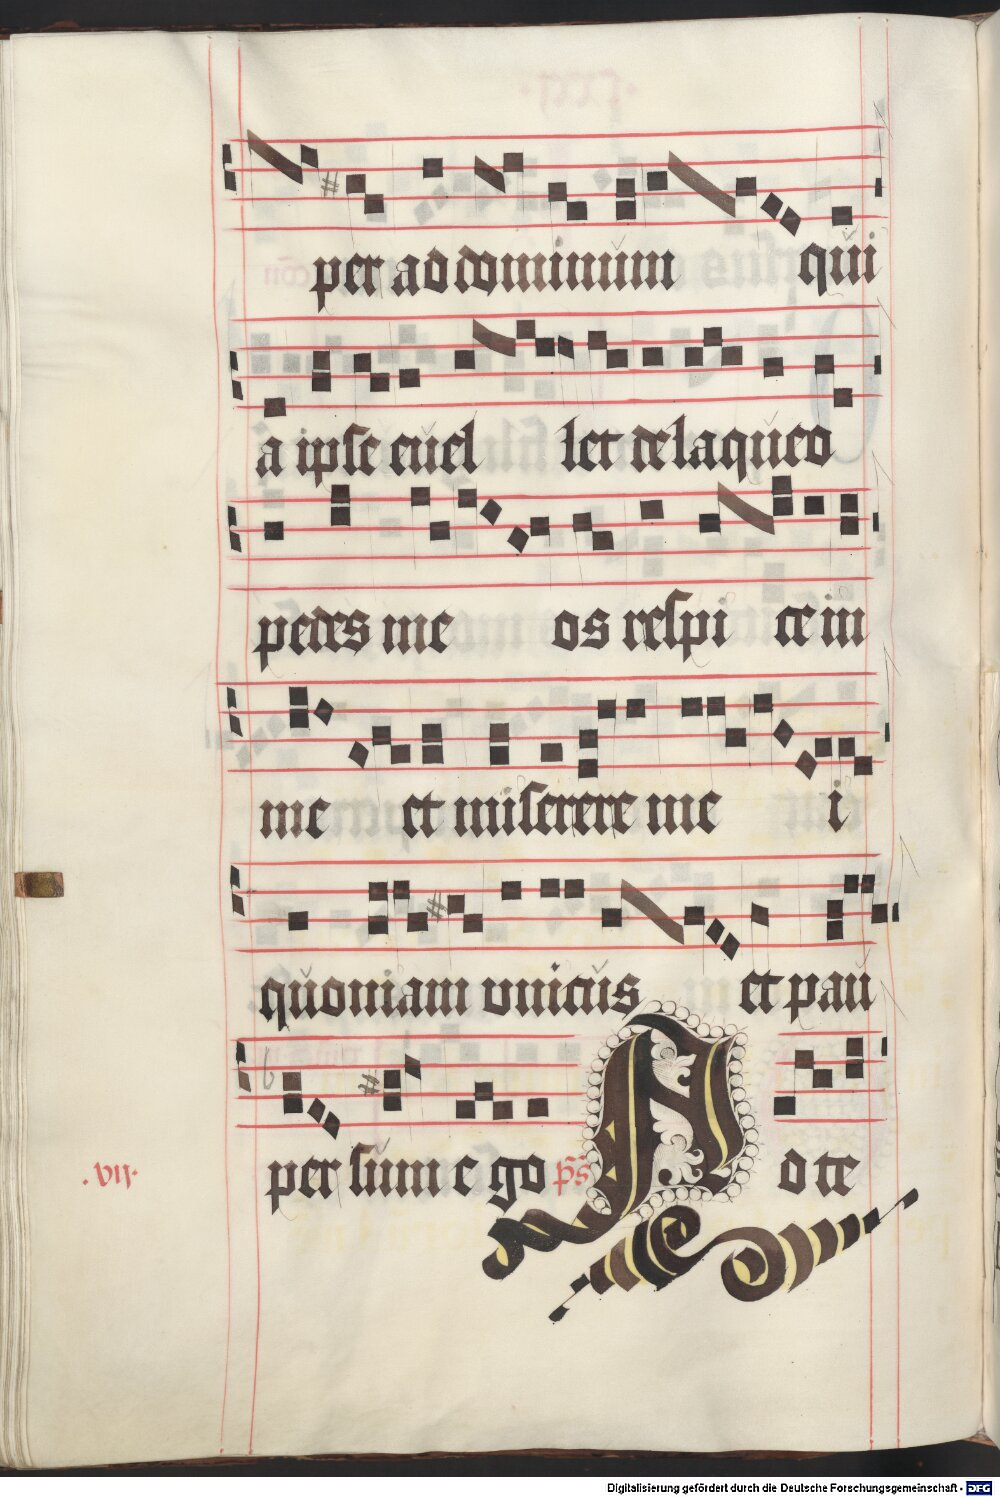 per ad dominum qui
a ipse euel let de laqueo
pedes me os respi ce in
me et miserere me i
quoniam vnicus et pau
per sum e go p̄s A d te
.vij.
Digitalisierung gefördert durch die Deutsche Forschungsgemeinschaft - DFG